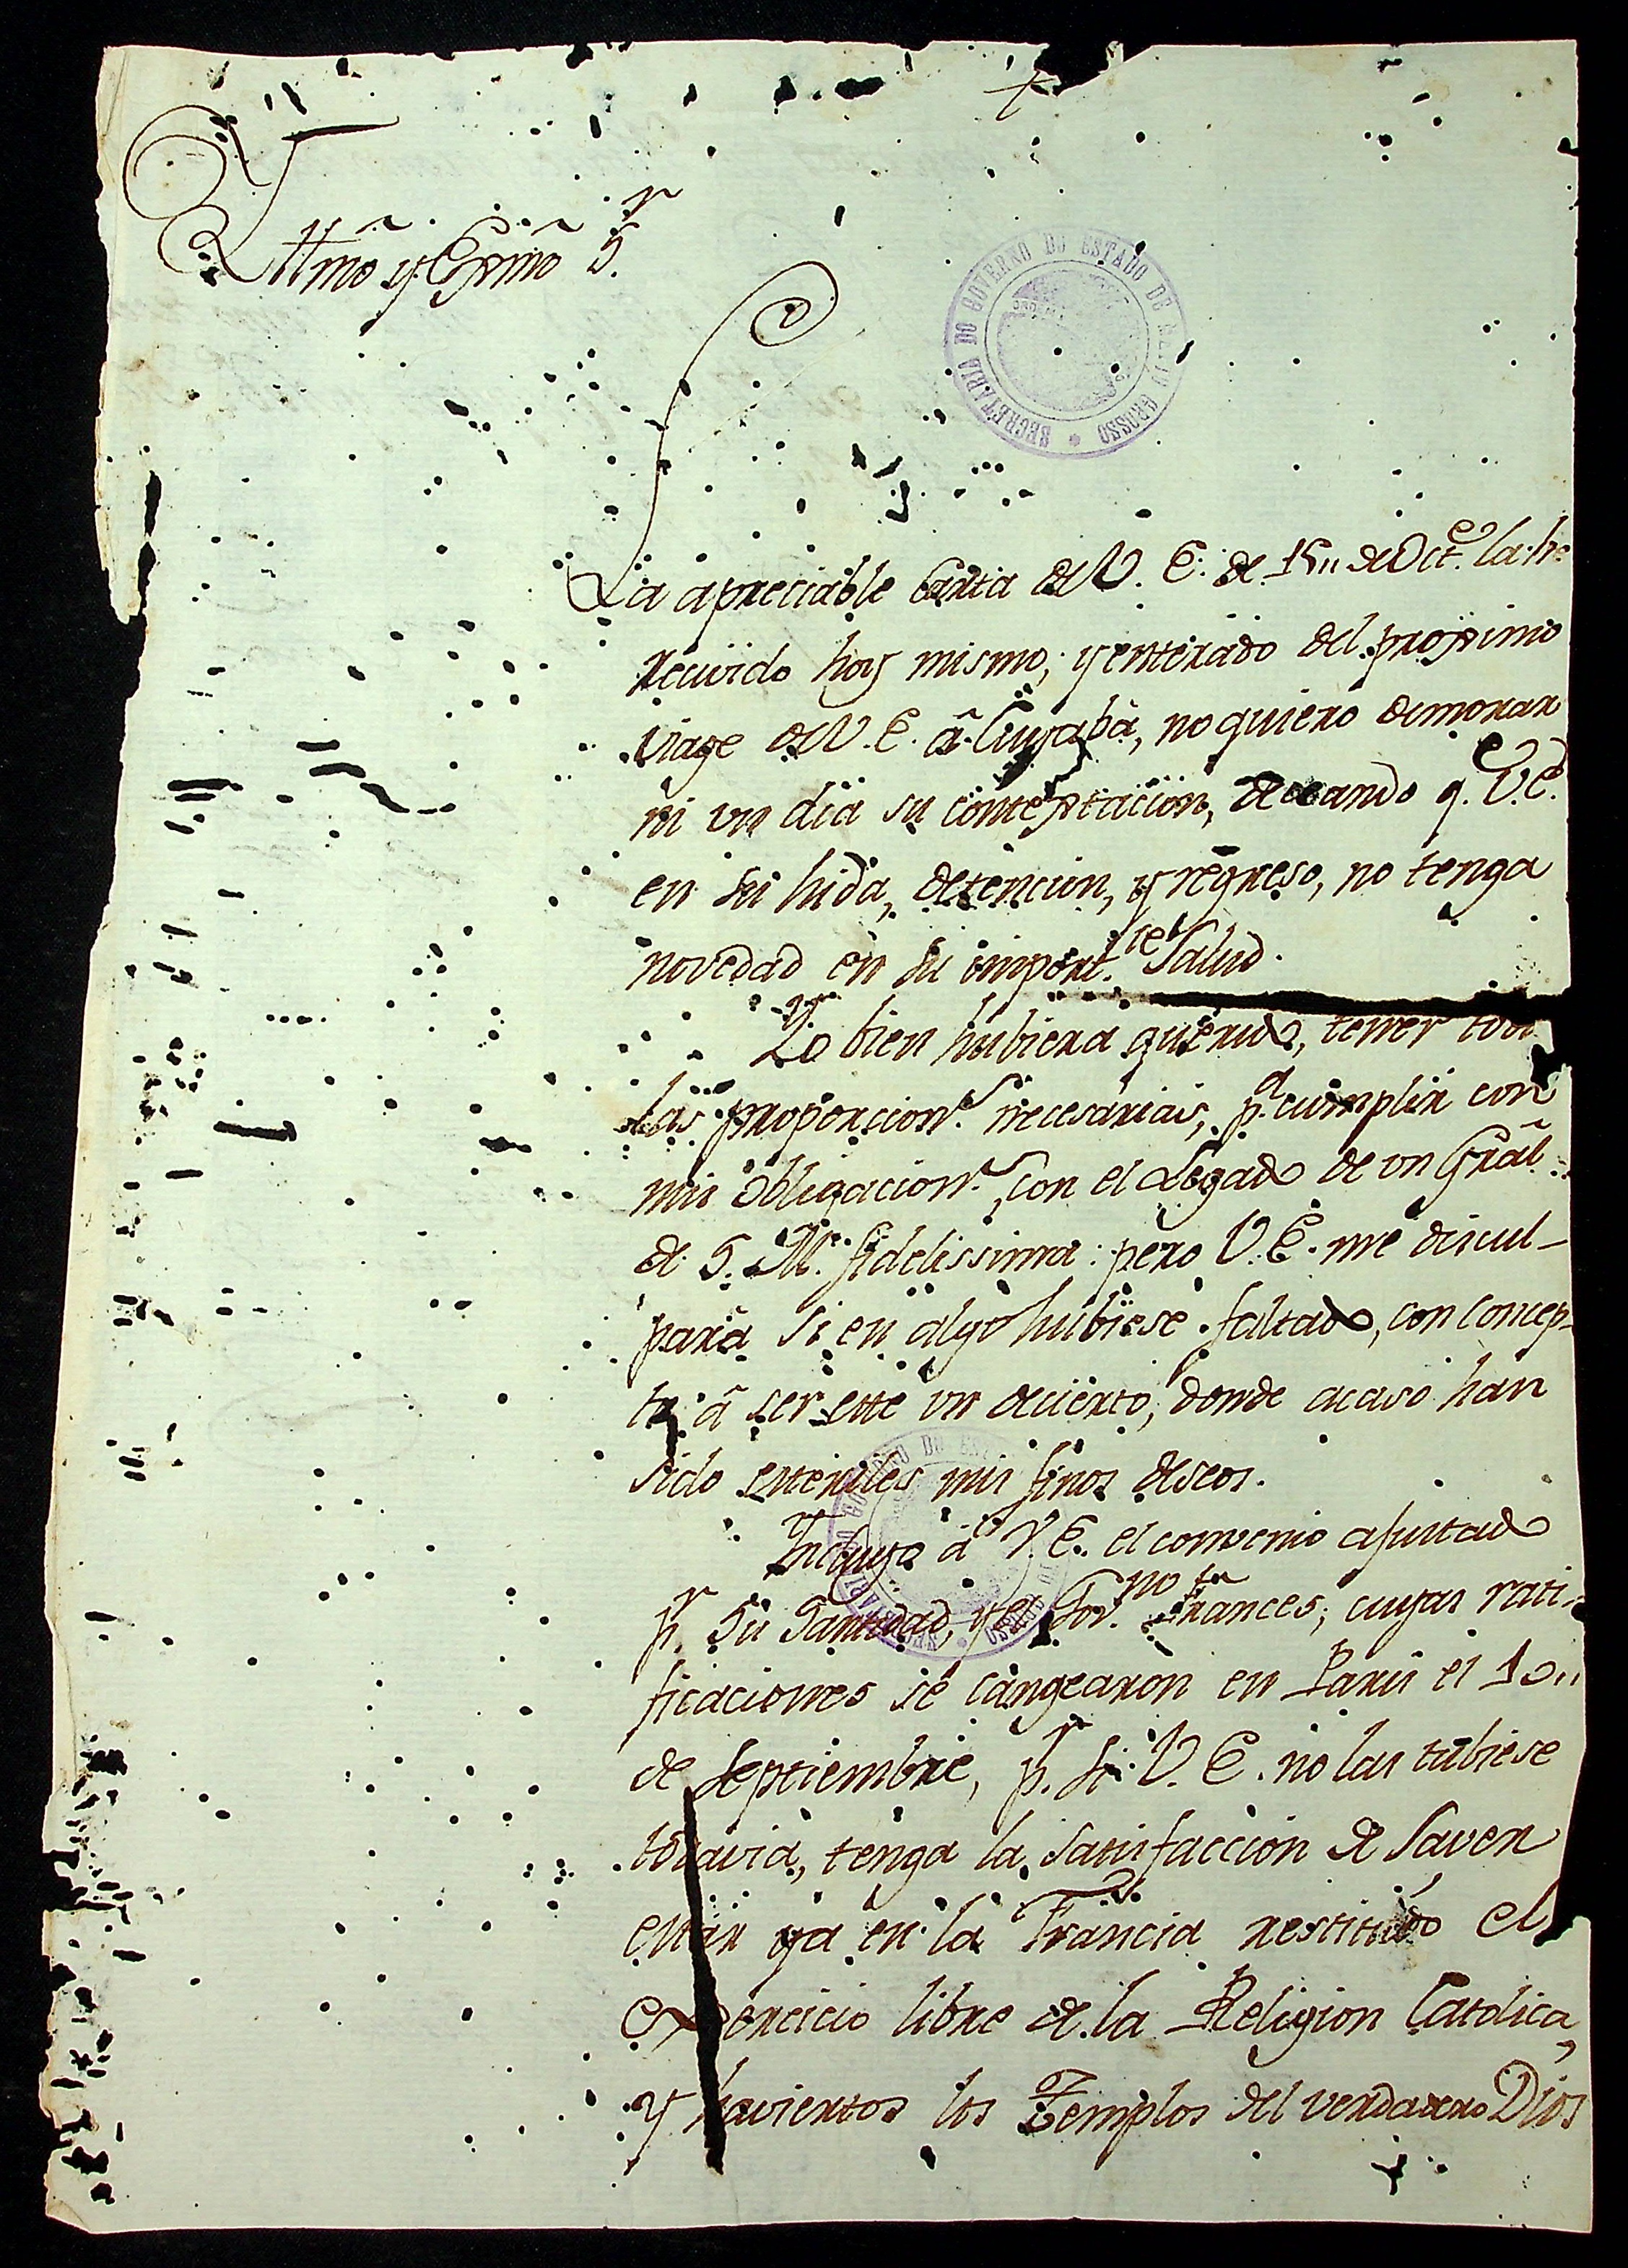 +
Yllmõ y Exmõ S.r
SECRETARIA DO GOVERNO DO ESTADO DE MATTO GROSSO
La apreciable Carta de V. E. de 15,, de Oct.e la he
recivido hoy mismo; y enterado del proximo
viage de V. E. â Cuyabà, no quiero demorar
ni un dia su contextacion, deseando q.e V. E.
en su hida, detencion, y regreso, no tenga
novedad en su import.te Salud.
Yo bien hubiera querido, tener todas
las proporcion.s necesarias, p.a cumplir con
mis obligacion.s, con el Legado de un Grãl
de S. M. fidelissima: pero V. E. me discul-
parà si en algo hubiese faltado, con concep-
to â ser este un decierto, donde acaso han
sido esteriles mis finos deseos.
Incluyo â V. E. el convenio ajustado
p.r Su Santidad, y el Gov.no Frances; cuyas rati-
ficaciones se cangearon en Paris el 10,,
de Septiembre, p.r si V. E. no las tubiese
todavia, tenga la satisfaccion de saver
estar ya en la Francia restituido el
exercicio libre de la Religion Catolica,
y haviertos los Templos del verdadero Dios